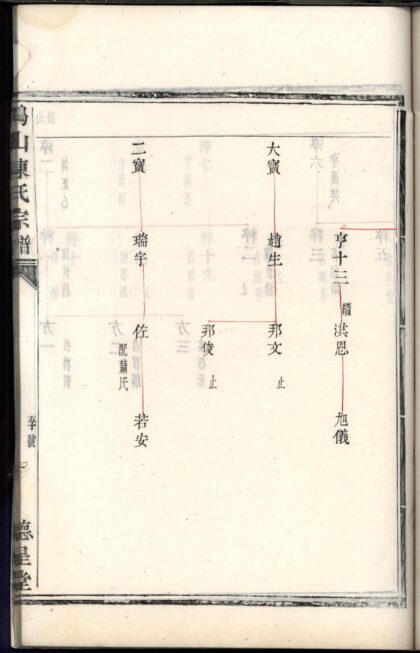 亨十三
續
洪恩
旭儀
大寶
趙生
邦文
止
邦俊
止
二寶
瑞宇
佐
配蕭氏
若安
山陳氏宗譜
辛號
德星堂